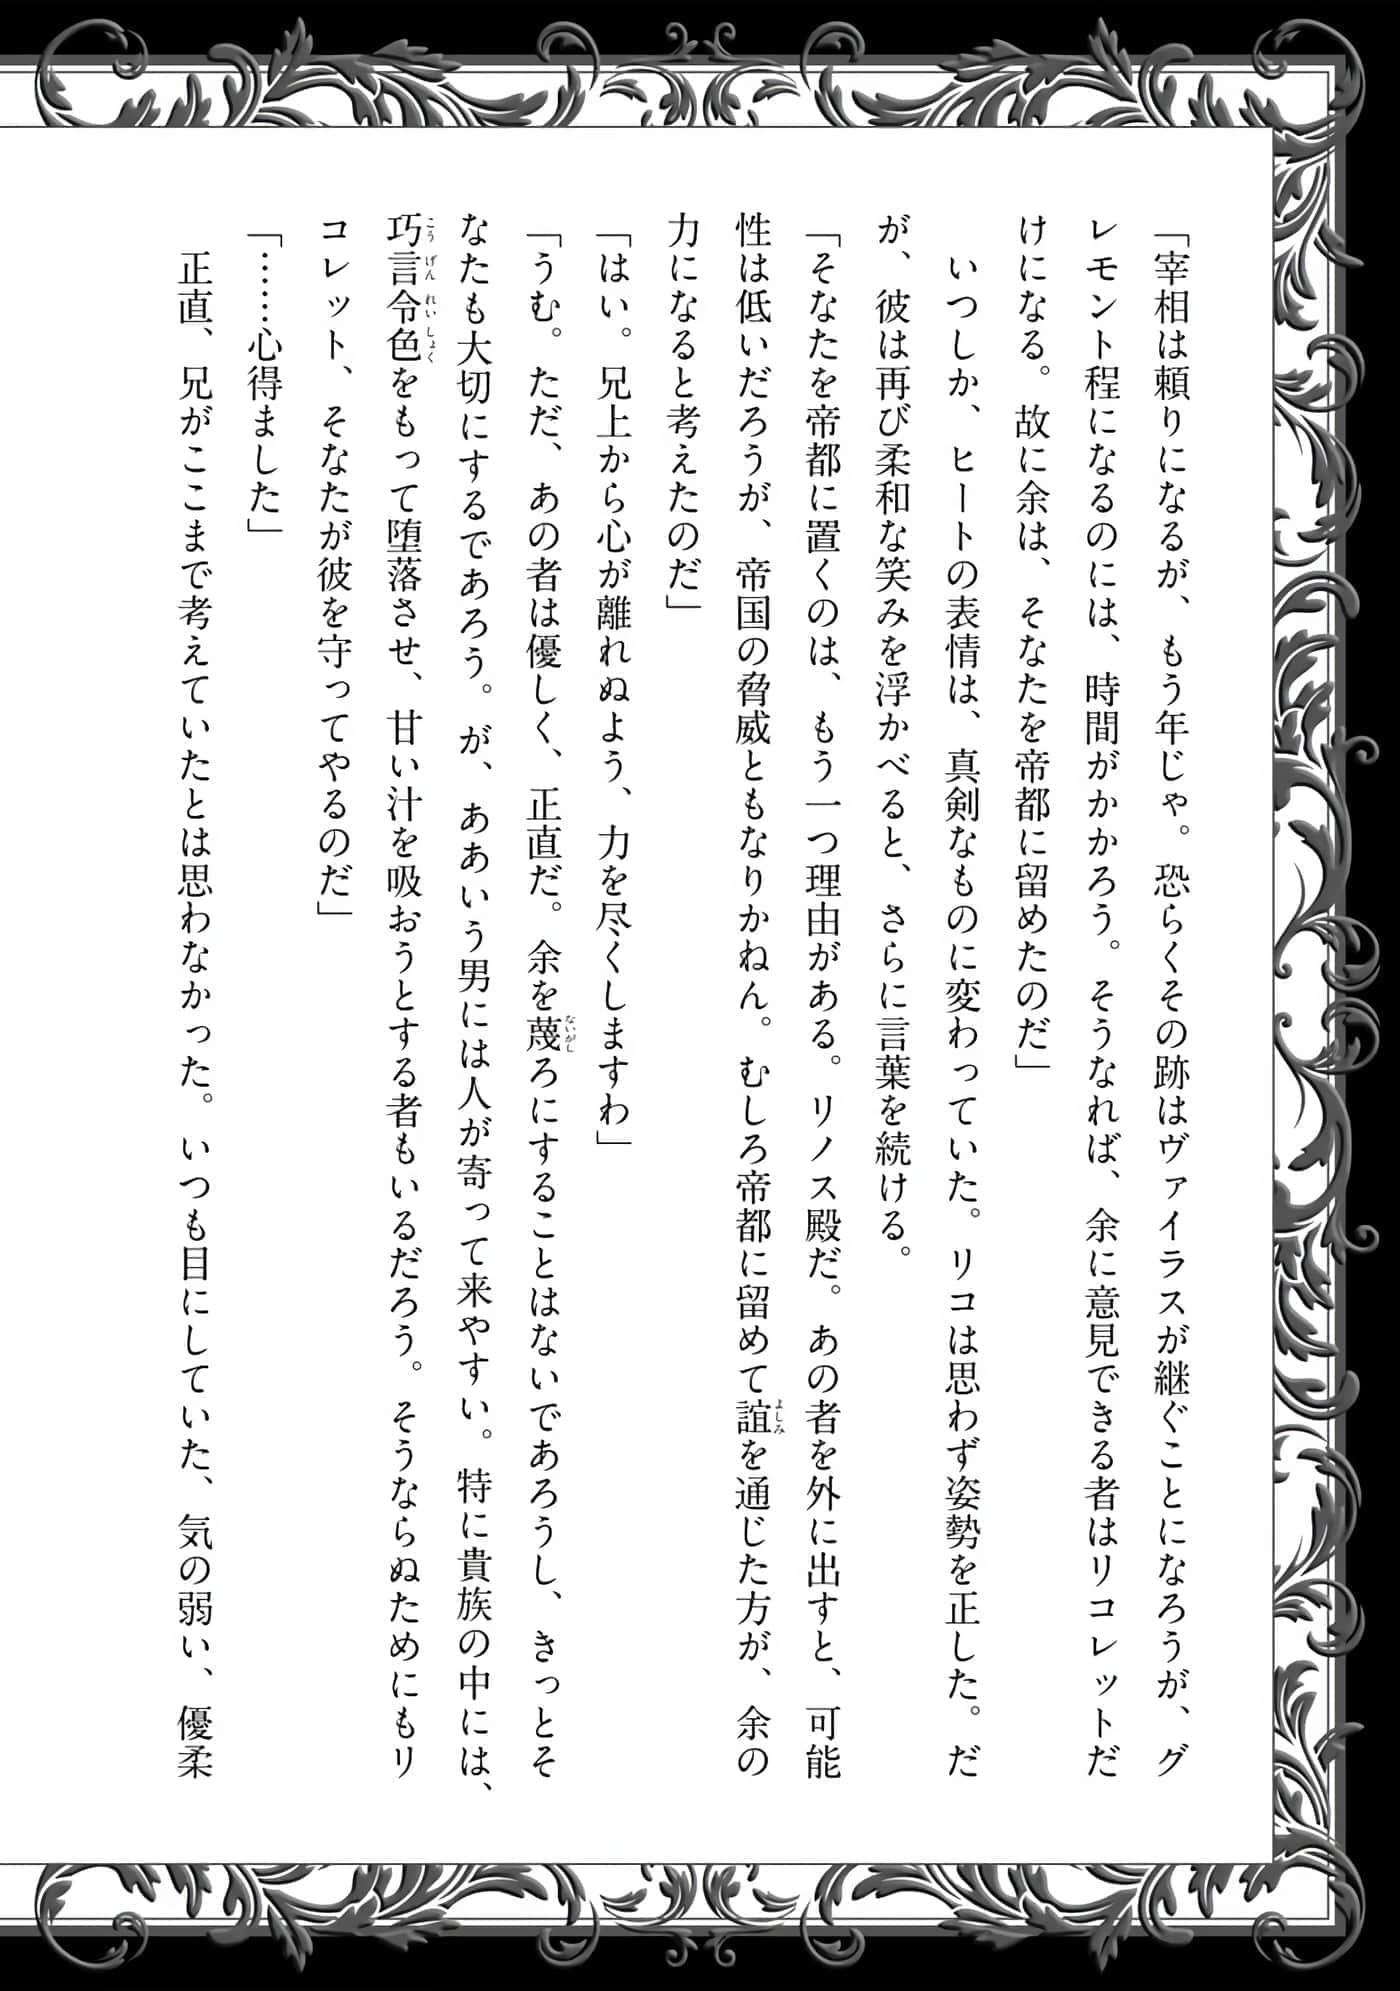 「宰相は頼りになるが、もう年じゃ。恐らくその跡はヴァイラスが継ぐことになろうが、グ
レモント程になるのには、時間がかかろう。そうなれば、余に意見できる者はリコレットだ
けになる。故に余は、そなたを帝都に留めたのだ」
いつしか、ヒートの表情は、真剣なものに変わっていた。リコは思わず姿勢を正した。だ
が、彼は再び柔和な笑みを浮かべると、さらに言葉を続ける。
「そなたを帝都に置くのは、もう一つ理由がある。リノス殿だ。あの者を外に出すと、可能
性は低いだろうが、帝国の脅威ともなりかねん。むしろ帝都に留めて誼を通じた方が、余の
よしみ
力になると考えたのだ」
「はい。兄上から心が離れぬよう、力を尽くしますわ」
「うむ。ただ、あの者は優しく、正直だ。余を蔑ろにすることはないであろうし、きっとそ
ないがし
なたも大切にするであろう。が、ああいう男には人が寄って来やすい。特に貴族の中には、
巧言令色をもって堕落させ、甘い汁を吸おうとする者もいるだろう。そうならぬためにもリ
こうげんれいしょく
コレット、そなたが彼を守ってやるのだ」
「……心得ました」
正直、兄がここまで考えていたとは思わなかった。いつも目にしていた、気の弱い、優柔